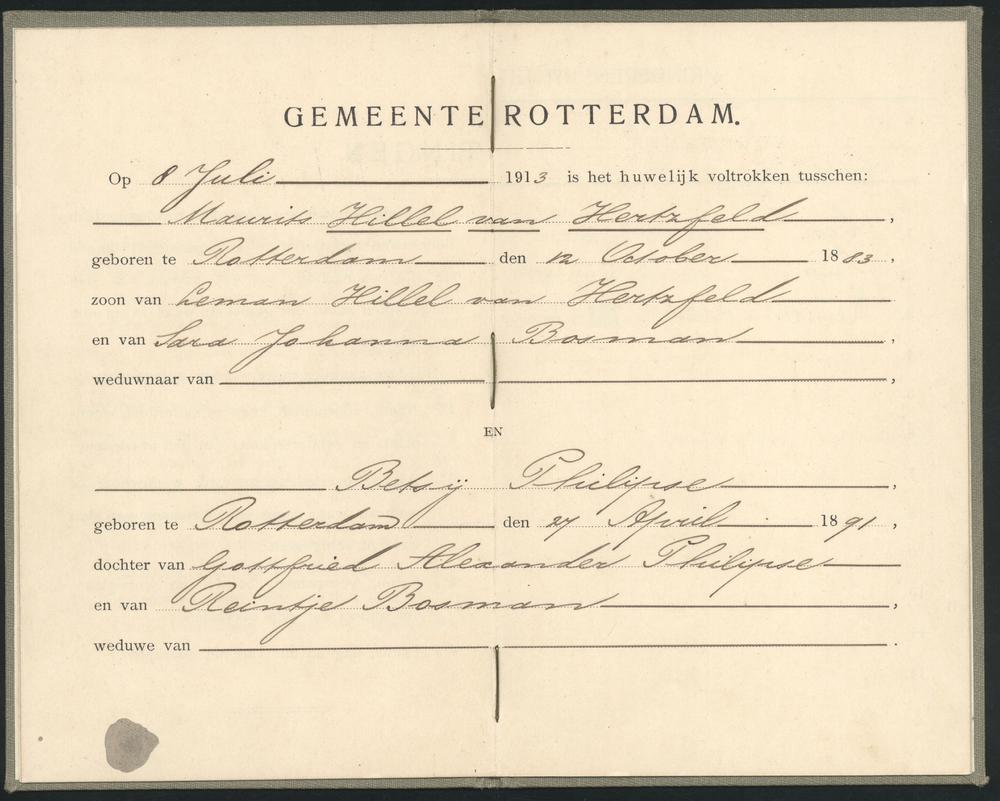 GEMEENTE ROTTERDAM.
Op 8 Juli 1913 is het huwelijk voltrokken tusschen:
Maurits Hillel van Hertzfeld,
geboren te Rotterdam den 12 October 1883,
zoon van Leman Hillel van Hertzfeld
en van Sara Johanna Bosman,
weduwnaar van ,
EN
Betsij Philipse,
geboren te Rotterdam den 27 April 1891,
dochter van Gottfried Alexander Philipse
en van Reintje Bosman,
weduwe van .